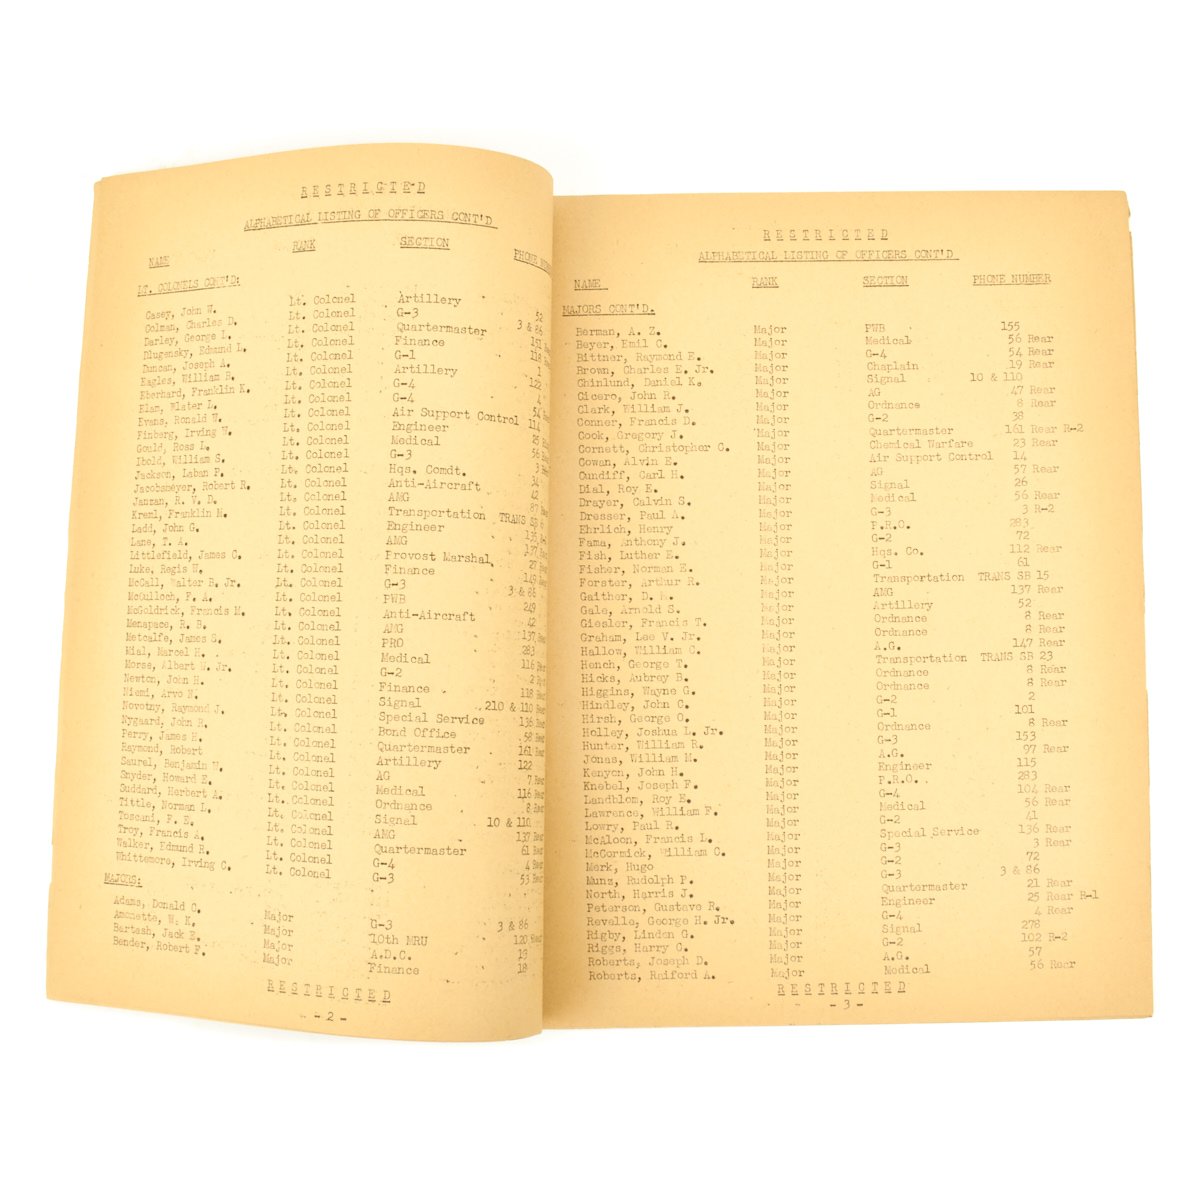 RESTRICTED
ALPHABETICAL LISTING OF OFFICERS CONT'D
NAME RANK SECTION PHONE
LT. COLONELS CONT'D:
Casey, John W. Lt. Colonel Artillery 52
Colman, Charles D. Lt. Colonel G-3 3 & 86
Darley, George L. Lt. Colonel Quartermaster 161 Rear
Dlugensky, Edmund L. Lt. Colonel Finance 118 Rear
Duncan, Joseph A. Lt. Colonel G-1 1
Eagles, William B. Lt. Colonel Artillery 122
Eberhard, Franklin K. Lt. Colonel G-4 4
Elam, Wlater L. Lt. Colonel G-4 54 Rear
Evans, Ronald W. Lt. Colonel Air Support Control 114
Finberg, Irving W. Lt. Colonel Engineer 25 Rear
Gould, Ross L. Lt. Colonel Medical 56 Rear
Ibold, William S. Lt. Colonel G-3 3 Rear
Jackson, Laban P. Lt. Colonel Hqs. Comdt. 34
Jacobsmeyer, Robert R. Lt. Colonel Anti-Aircraft 42
Janzan, R. V. D. Lt. Colonel AMG 87 Rear
Kreml, Franklin M. Lt. Colonel Transportation TRANS SB 6
Ladd, John G. Lt. Colonel Engineer 135
Lane, T. A. Lt. Colonel AMG 137 Rear
Littlefield, James C. Lt. Colonel Provost Marshal 27 Rear
Luke, Regis W. Lt. Colonel Finance 149 Rear
McCall, Walter B. Jr. Lt. Colonel G-3 3 & 86
McCulloch, F. A. Lt. Colonel PWB 249
McGoldrick, Francis M. Lt. Colonel Anti-Aircraft 42
Menapace, R. B. Lt. Colonel AMG 137 Rear
Metcalfe, James S. Lt. Colonel PRO 283
Mial, Marcel H. Lt. Colonel Medical 116 Rear
Morse, Albert W. Jr. Lt. Colonel G-2 2
Newton, John H. Lt. Colonel Finance 118 Rear
Niemi, Arvo N. Lt. Colonel Signal 210 & 110 Rear
Novotny, Raymond J. Lt. Colonel Special Service 136 Rear
Nygaard, John R. Lt. Colonel Bond Office 58 Rear
Perry, James H. Lt. Colonel Quartermaster 161 Rear
Raymond, Robert Lt. Colonel Artillery 122
Saurel, Benjamin W. Lt. Colonel AG 7 Rear
Snyder, Howard E. Lt. Colonel Medical 116 Rear
Suddard, Herbert A. Lt. Colonel Ordnance 8 Rear
Tittle, Norman L. Lt. Colonel Signal 10 & 110
Toscani, F. E. Lt. Colonel AMG 137 Rear
Troy, Francis A. Lt. Colonel Quartermaster 61 Rear
Walker, Edmund R. Lt. Colonel G-4 4 Rear
Whittemore, Irving C. Lt. Colonel G-3 53 Rear
MAJORS:
Adams, Donald C. Major G-3 3 & 86
Amonette, W. K. Major 10th MRU 120 Rear
Bartash, Jack E. Major A.D.C. 13
Bender, Robert F. Major Finance 18
RESTRICTED
- 2 -
RESTRICTED
ALPHABETICAL LISTING OF OFFICERS CONT'D
NAME RANK SECTION PHONE NUMBER
MAJORS CONT'D.
Berman, A. Z. Major PWB 155
Beyer, Emil C. Major Medical 56 Rear
Bittner, Raymond E. Major G-4 54 Rear
Brown, Charles E. Jr. Major Chaplain 19 Rear
Chinlund, Daniel K. Major Signal 10 & 110
Cicero, John R. Major AG 47 Rear
Clark, William J. Major Ordnance 8 Rear
Conner, Francis D. Major G-2 38
Cook, Gregory J. Major Quartermaster 161 Rear R-2
Cornett, Christopher C. Major Chemical Warfare 23 Rear
Cowan, Alvin E. Major Air Support Control 14
Cundiff, Carl H. Major AG 57 Rear
Dial, Roy E. Major Signal 26
Drayer, Calvin S. Major Medical 56 Rear
Dresser, Paul A. Major G-3 3 R-2
Ehrlich, Henry Major P.R.O. 283
Fama, Anthony J. Major G-2 72
Fish, Luther E. Major Hqs. Co. 112 Rear
Fisher, Norman E. Major G-1 61
Forster, Arthur R. Major Transportation TRANS SB 15
Gaither, D. Major AMG 137 Rear
Gale, Arnold S. Major Artillery 52
Giesler, Francis T. Major Ordnance 8 Rear
Graham, Lee V. Jr. Major Ordnance 8 Rear
Hallow, William C. Major A.G. 147 Rear
Hench, George T. Major Transportation TRANS SB 23
Hicks, Aubrey B. Major Ordnance 8 Rear
Higgins, Wayne G. Major Ordnance 8 Rear
Hindley, John C. Major G-2 2
Hirsh, George O. Major G-1 101
Holley, Joshua L. Jr. Major Ordnance 8 Rear
Hunter, William R. Major G-3 153
Jonas, William M. Major A.G. 97 Rear
Kenyon, John H. Major Engineer 115
Knebel, Joseph F. Major P.R.O. 283
Landblom, Roy E. Major G-4 104 Rear
Lawrence, William F. Major Medical 56 Rear
Lowry, Paul R. Major G-2 41
McAloon, Francis L. Major Special Service 136 Rear
McCormick, William C. Major G-3 3 Rear
Merk, Hugo Major G-2 72
Munz, Rudolph P. Major G-3 3 & 86
North, Harris J. Major Quartermaster 21 Rear
Peterson, Gustave R. Major Engineer 25 Rear R-1
Revelle, George H. Jr. Major G-4 4 Rear
Rigby, Linden G. Major Signal 278
Riggs, Harry C. Major G-2 102 R-2
Roberts, Joseph D. Major A.G. 57
Roberts, Raiford A. Major Medical 56 Rear
RESTRICTED
- 3 -